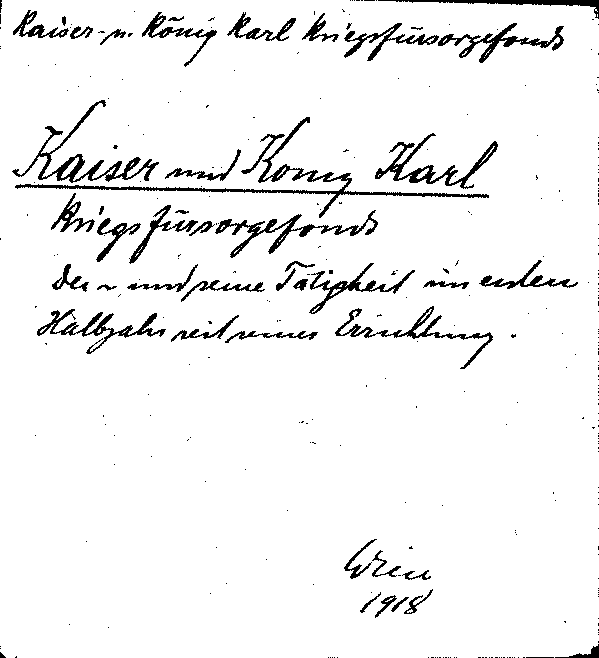 Kaiser- u. König Karl Kriegsfürsorgefonds
Kaiser und König Karl
Kriegsfürsorgefonds
Der ~ und seine Tätigkeit im ersten
Halbjahr seit seiner Errichtung.
Wien
1918